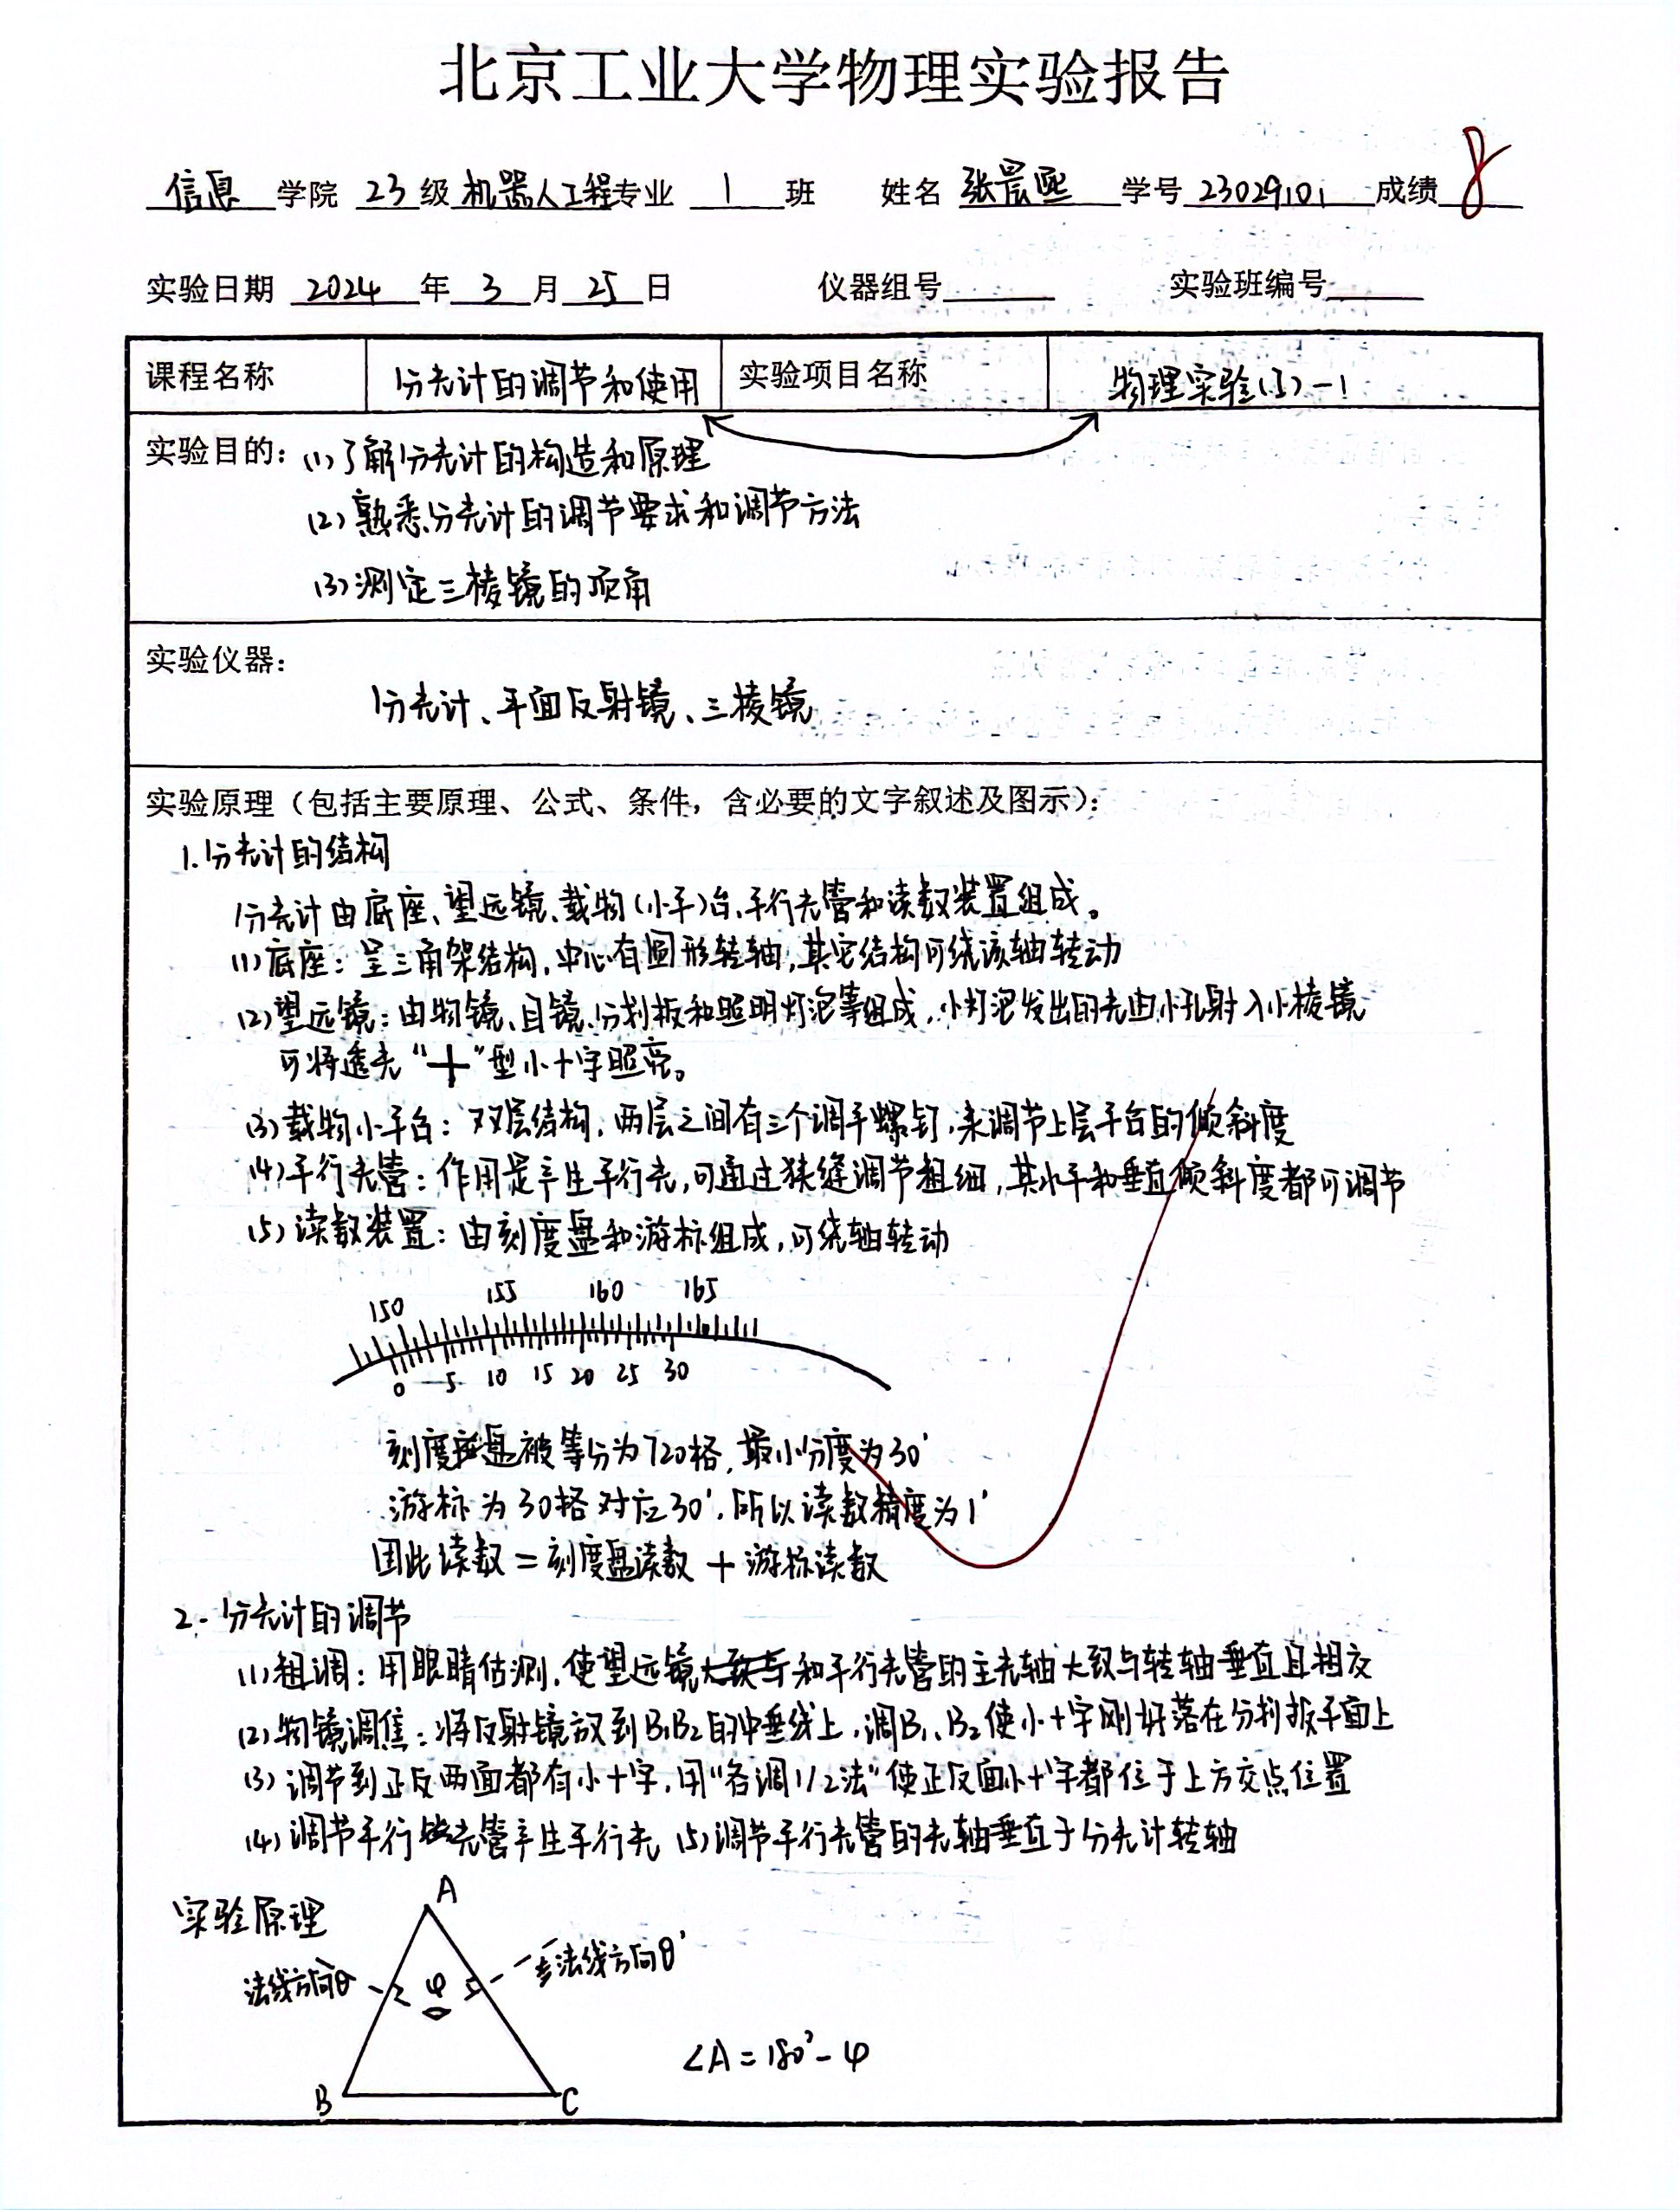 北京工业大学物理实验报告
信息 学院 23 级 机器人工程 专业 1 班 姓名 张晨熙 学号 23029101 成绩 8
实验日期 2024 年 3 月 25 日 仪器组号 实验班编号
课程名称 分光计的调节和使用 实验项目名称 物理实验(Ⅰ)-1
实验目的: (1)了解分光计的构造和原理
(2)熟悉分光计的调节要求和调节方法
(3)测定三棱镜的顶角
实验仪器:
分光计、平面反射镜、三棱镜
实验原理(包括主要原理、公式、条件,含必要的文字叙述及图示):
1.分光计的结构
分光计由底座、望远镜、载物(小平)台、平行光管和读数装置组成。
(1)底座:呈三角架结构,中心有圆形转轴,其它结构可绕该轴转动
(2)望远镜:由物镜、目镜、分划板和照明灯泡等组成,小灯泡发出的光由小孔射入小棱镜
可将透光“十”型小十字照亮。
(3)载物小平台:双层结构,两层之间有三个调平螺钉,来调节上层平台的倾斜度
(4)平行光管:作用是产生平行光,可通过狭缝调节粗细,其水平和垂直倾斜度都可调节
(5)读数装置:由刻度盘和游标组成,可绕轴转动
150 155 160 165
0 5 10 15 20 25 30
刻度盘被等分为720格,最小分度为30′
游标为30格对应30′,所以读数精度为1′
因此读数=刻度盘读数+游标读数
2.分光计的调节
(1)粗调:用眼睛估测,使望远镜和平行光管的主光轴大致与转轴垂直且相交
(2)物镜调焦:将反射镜放到B₁B₂的中垂线上,调B₁、B₂使小十字刚好落在分划板平面上
(3)调节到正反两面都有小十字,用“各调1/2法”使正反面小十字都位于上方交点位置
(4)调节平行光管产生平行光 (5)调节平行光管的光轴垂直于分光计转轴
实验原理
A
法线方向θ φ 法线方向θ′
∠A=180°-φ
B C